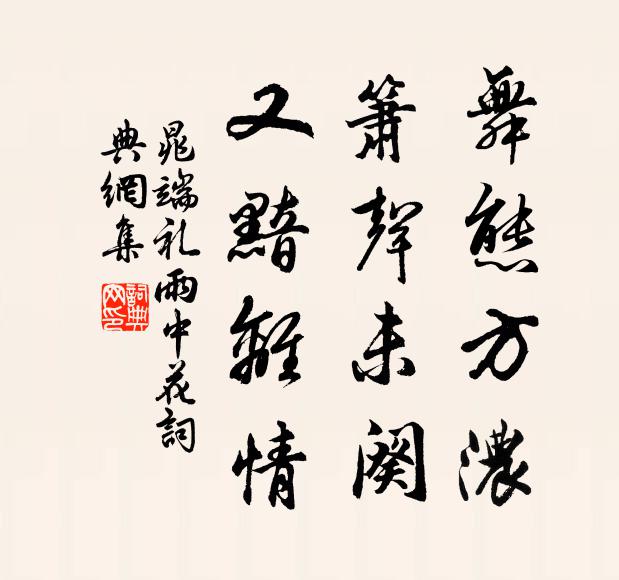 舞態方濃
簫聲未闋
又黯離情
晁端礼雨中花詞
典網集
詞典網印